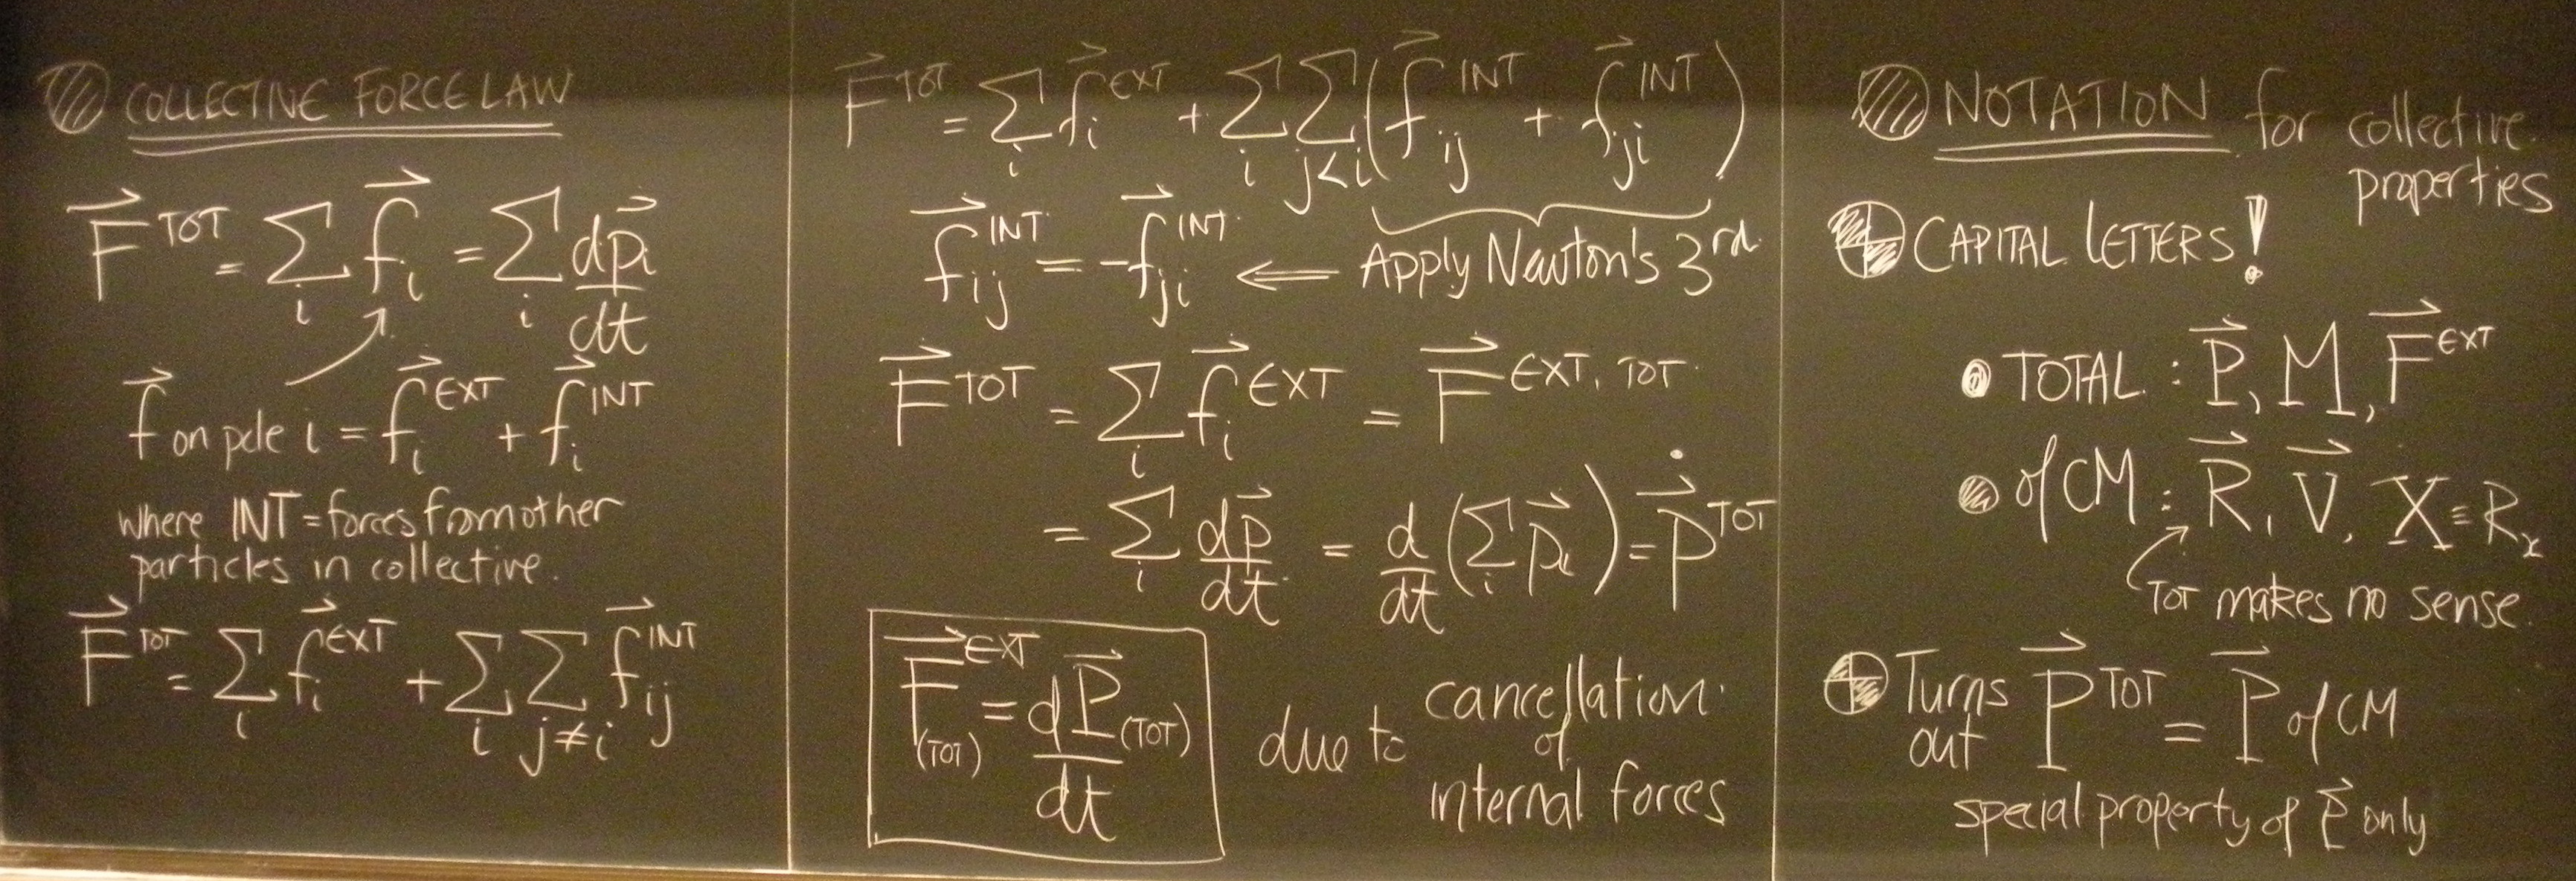 COLLECTIVE FORCE LAW
F⃗^TOT = Σ_i f⃗_i = Σ_i dp⃗_i/dt
f⃗ on pcle i = f⃗_i^EXT + f⃗_i^INT
where INT = forces from other
particles in collective.
F⃗^TOT = Σ_i f⃗_i^EXT + Σ_i Σ_{j≠i} f⃗_ij^INT
F⃗^TOT = Σ_i f⃗_i^EXT + Σ_i Σ_{j<i} (f⃗_ij^INT + f⃗_ji^INT)
f⃗_ij^INT = -f⃗_ji^INT ⇐ Apply Newton's 3rd
F⃗^TOT = Σ_i f⃗_i^EXT = F⃗^EXT, TOT
= Σ_i dp⃗/dt = d/dt (Σ_i p⃗_i) = Ṗ⃗^TOT
F⃗^EXT_(TOT) = dP⃗_(TOT)/dt
due to cancellation
of
internal forces
NOTATION for collective
properties
CAPITAL LETTERS!
TOTAL : P⃗, M, F⃗^EXT
of CM : R⃗, V⃗, X ≡ R_x
TOT makes no sense.
Turns out P⃗^TOT = P⃗ of CM
special property of P⃗ only